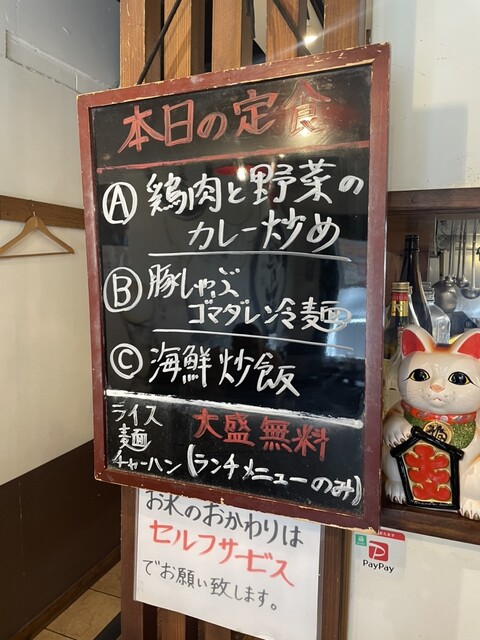 本日の定食
Ⓐ 鶏肉と野菜の
カレー炒め
Ⓑ 豚しゃぶ
ゴマダレ冷麺
Ⓒ 海鮮炒飯
ライス
麺
チャーハン
大盛無料
(ランチメニューのみ)
お水のおかわりは
セルフサービス
でお願い致します。
PayPay